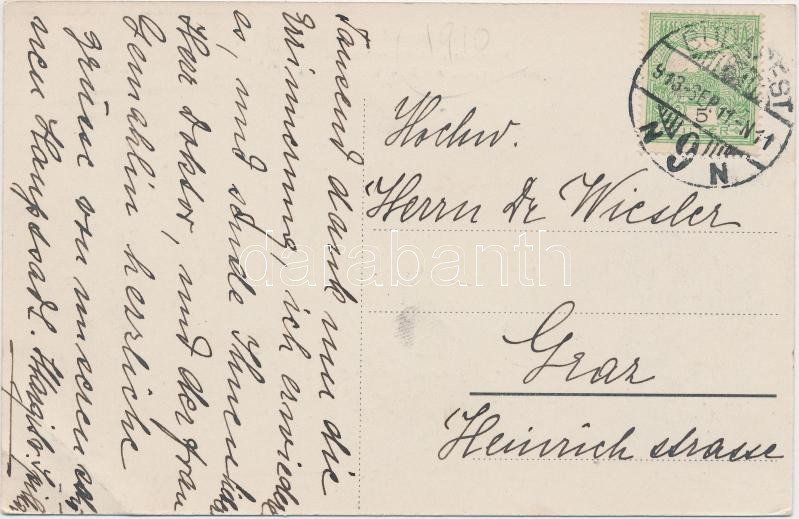 Tausend dank um die
Erinnerung, ich erwieder
es, und sende Ihnen
Herr Doktor, und der frau
Gemahlin herzliche
grüsse von unseren
neu Haupstadt.
1910
BUDAPEST
913-SEP 11-N11
5
9
N N
Hochw.
Herrn Dr Wiesler
Graz
Heinrich strasse
darabanth